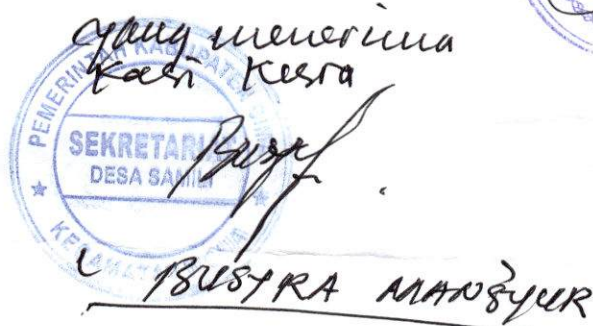 yang menerima
Kasi Kesra
PEMERINTAH KABUPATEN
SEKRETARIAT
DESA
KECAMATAN
BUSYRA MANSYUR